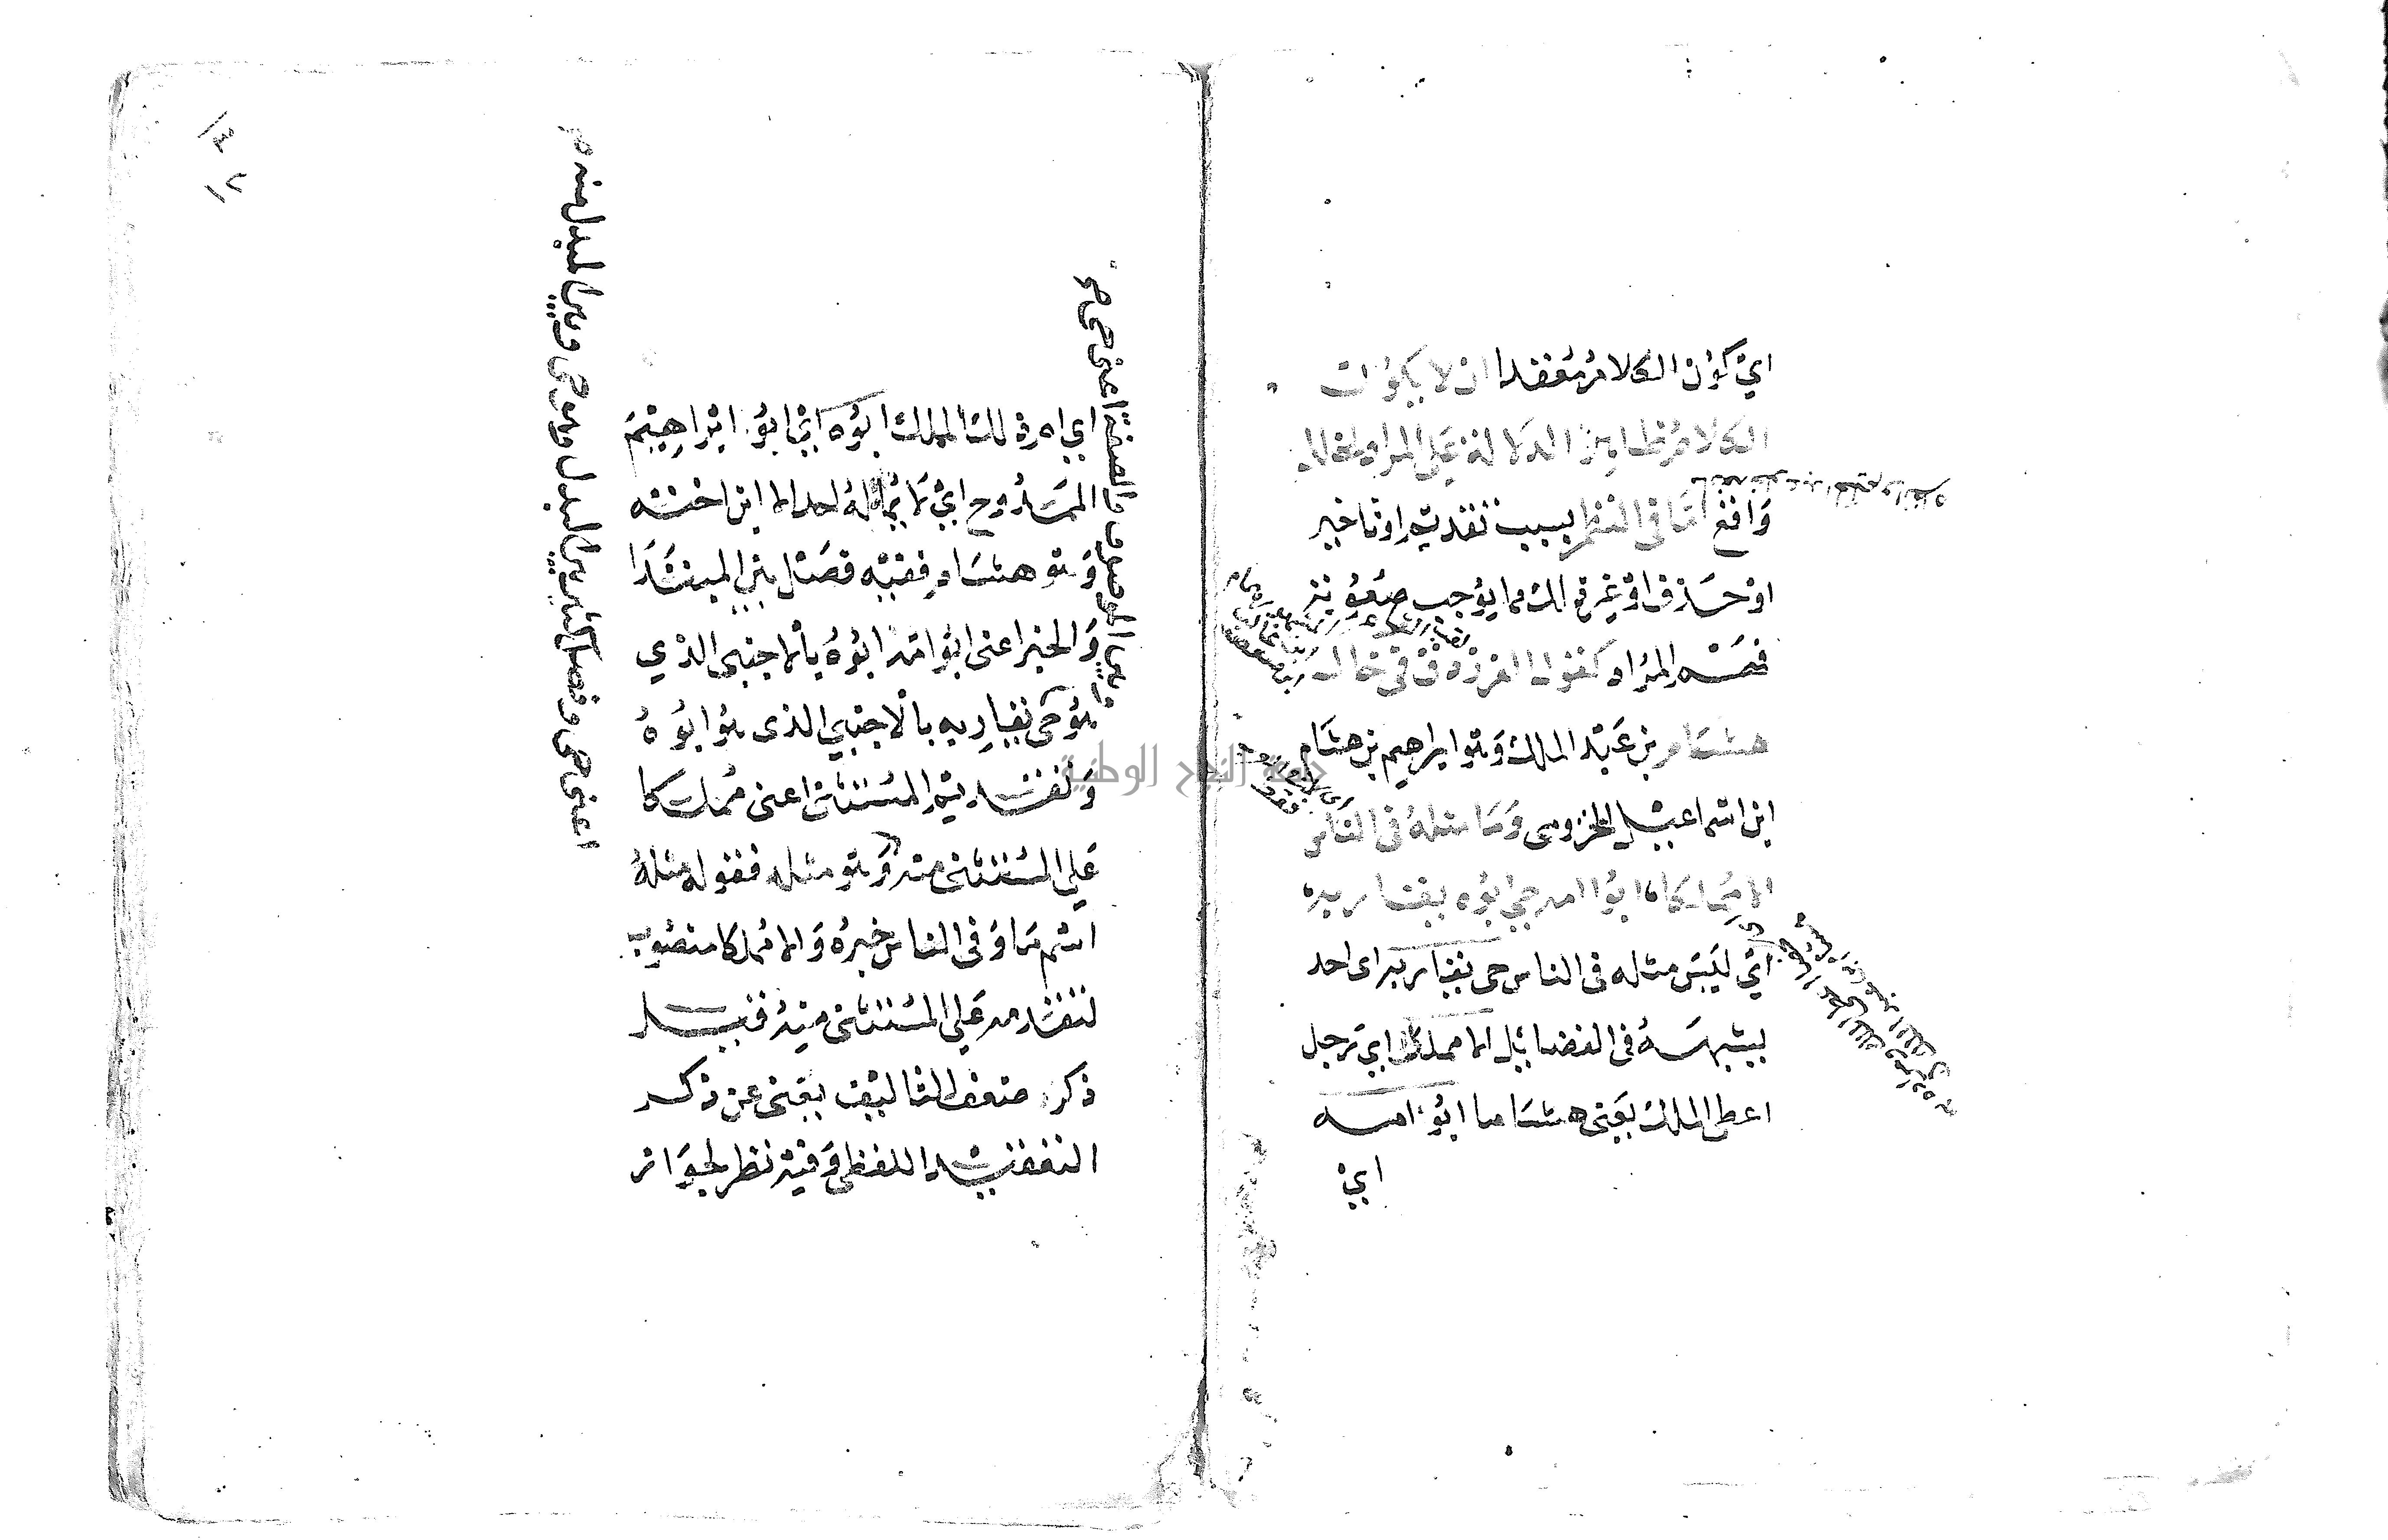 اي كون الكلام معقدا ان لا يكون
الكلام ظاهر الدلالة على المراد لخلل
واقع اما في النظم بسبب تقديم او تاخير
او حذف او غير ذلك مما يوجب صعوبة
فهم المراد كقول الفرزدق في خال
هشام بن عبد الملك وهو ابراهيم بن هشام
ابن اسماعيل المخزومي وما مثله في الناس
الا مملكا ابو امه حي ابوه يقاربه
اي ليس مثله في الناس حي يقاربه اي احد
يشبهه في الفضائل الا مملكا اي رجل
اعطى الملك يعني هشاما ابو امه
اي
اي ام ذلك الملك ابوه اي ابو ابراهيم
الممدوح اي لا يماثله احد الا ابن اخته
وهو هشام ففيه فصل بين المبتدا
والخبر اعني ابو امه ابوه بالاجنبي الذي
هو حي يقاربه بالاجنبي الذي هو ابوه
وتقديم المستثنى اعني مملكا
على المستثنى منه وهو مثله فقوله مثله
اسم ما وفي الناس خبره والا مملكا منصوب
لتقدمه على المستثنى منه فقيل
ذكر ضعف التاليف يغني عن ذكر
التعقيد اللفظي وفيه نظر لجواز
وبين الموصوف والصفة اعني حي
اعني حي وفصل كثير بين البدل وهو حي وبين المبدل منه
جامعة النجاح الوطنية